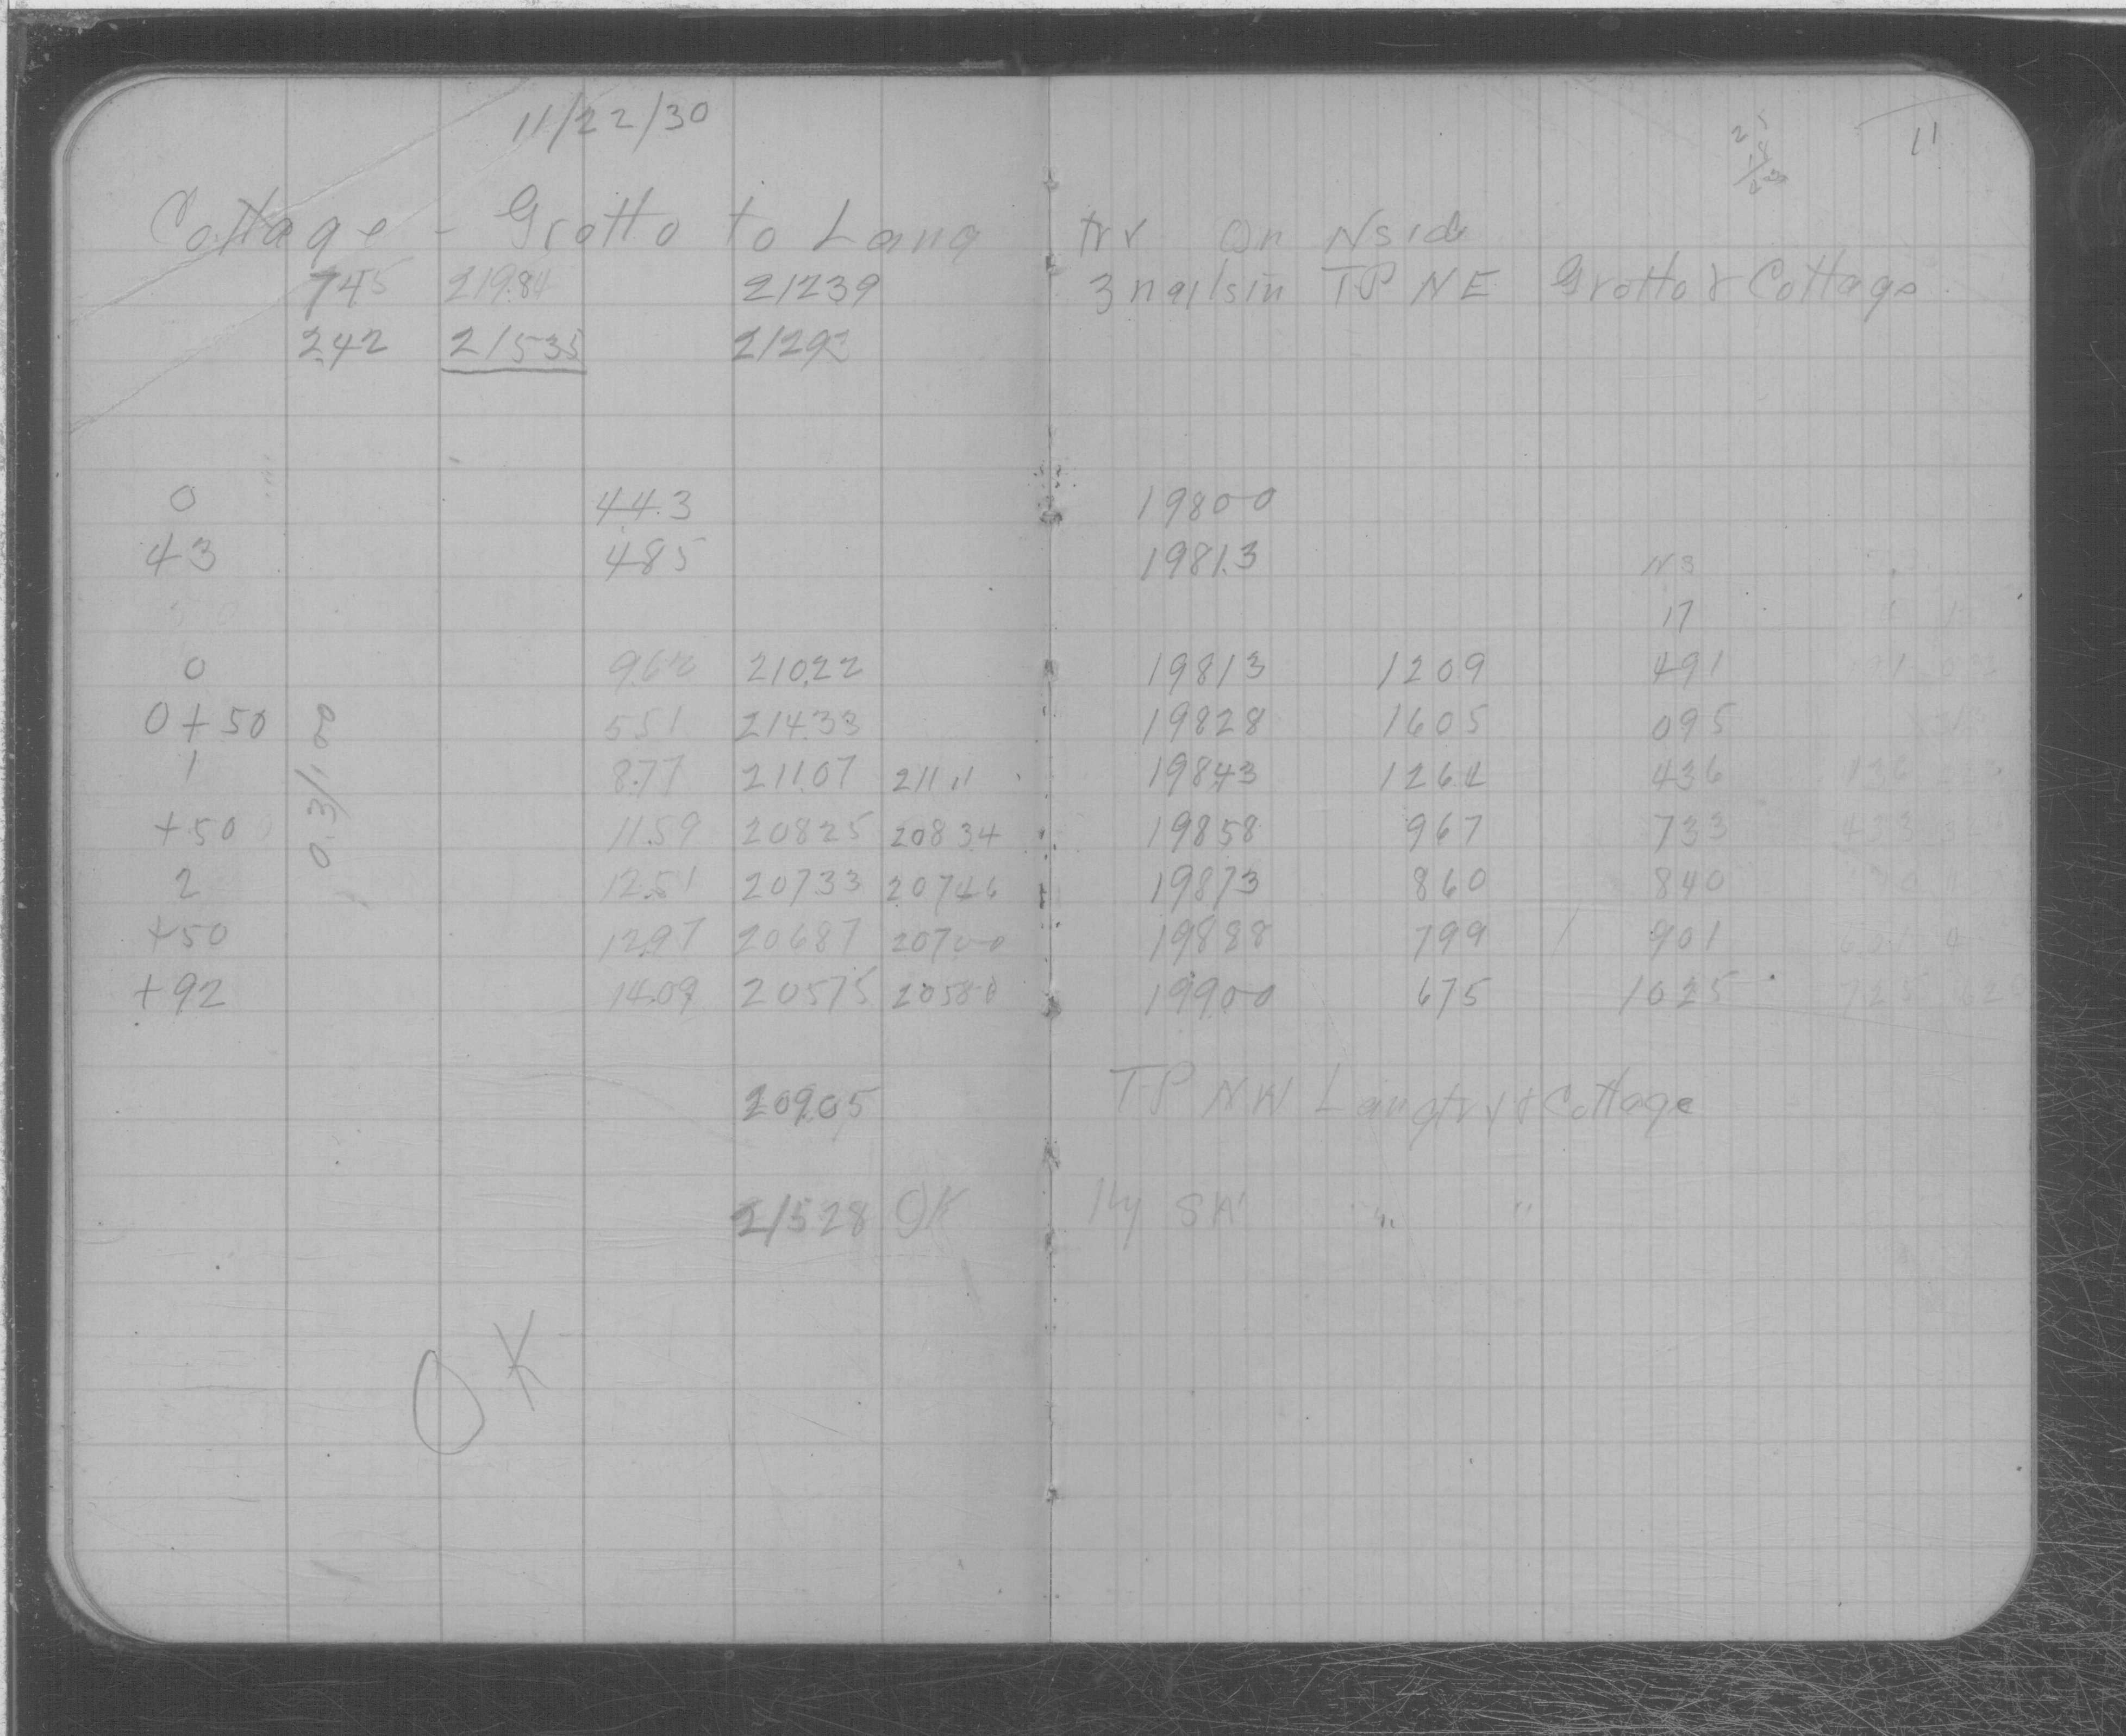 11/22/30
11
Cottage - Grotto to Lang try On N side
745 21984 21239 3 nails in TP NE Grotto & Cottage
242 21535 2129
0 44.3 19800
43 485 1981.3
17
0 9.62 21022 19813 1209 491
0+50 551 21433 19828 1605 095
1 8.77 21107 211 11 19843 1262 436
+50 11.59 20825 20834 19858 967 733
2 12.51 20733 20746 19873 860 840
+50 1297 20687 20700 19888 799 901
+92 14.09 20575 20580 19900 675 1025
0.3/100
209.05 TP NW Langtry & Cottage
21528 OK Hy SW " "
OK